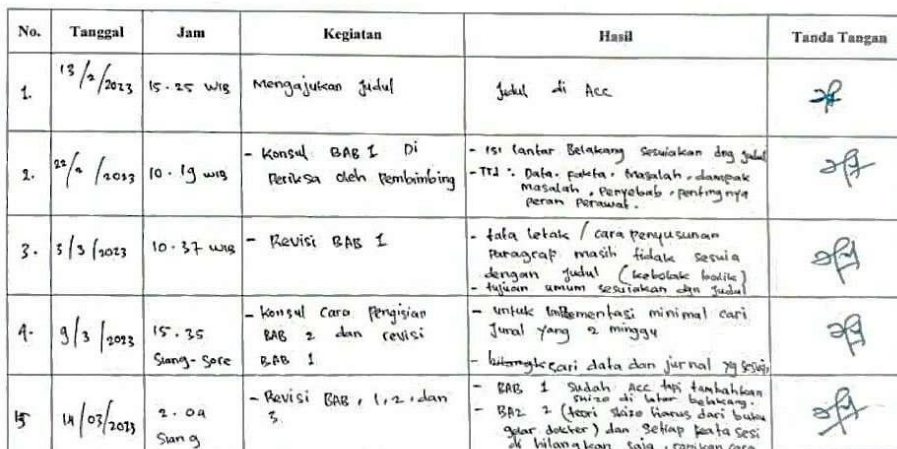 No. Tanggal Jam Kegiatan Hasil Tanda Tangan
1. 13/2/2023 15.25 WIB Mengajukan Judul Judul di Acc
2. 22/2/2023 10.19 WIB - Konsul BAB I Di
Periksa oleh Pembimbing
- Isi lantar Belakang Sesuiakan dng Judul
- TTJ : Data, fakta, masalah, dampak
masalah, penyebab, pentingnya
peran perawat.
3. 3/3/2023 10.37 WIB - Revisi BAB I
- tata letak / cara penyusunan
Paragraf masih tidak sesuia
dengan Judul (kebolak balik)
- tujuan umum sesuiakan dgn Judul
4. 9/3/2023 15.35
Siang-Sore
- Konsul Cara Pengisian
BAB 2 dan revisi
BAB 1
- untuk minimal cari
Jurnal yang 2 minggu
- cari data dan jurnal yg sesuai
5 14/03/2023 2.09
Siang
- Revisi BAB, 1, 2, dan
3.
- BAB 1 sudah Acc tapi tambahkan
skizo di latar belakang.
- BAB 2 (teori skizo harus dari buku
gelar dokter) dan setiap kata sesi
di hilangkan saja, rapikan cara